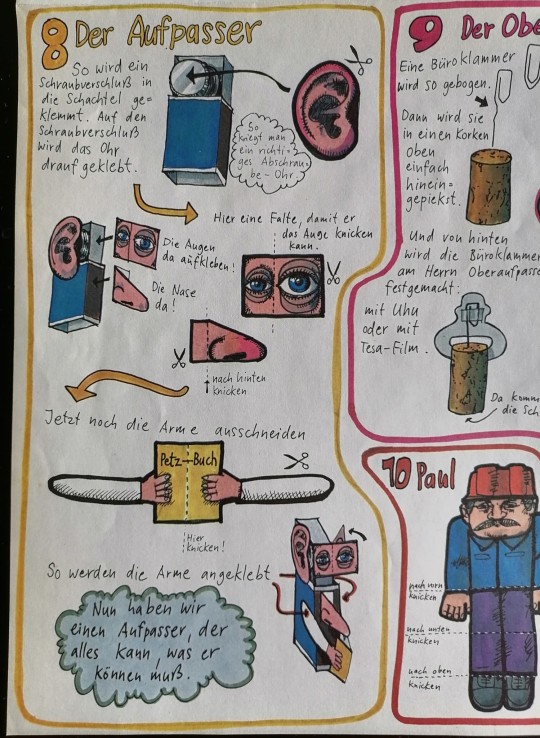 8 Der Aufpasser
So wird ein
Schraubverschluß in
die Schachtel ge=
klemmt. Auf den
Schraubverschluß
wird das Ohr
drauf geklebt.
So
kriegt man
ein richti=
ges Abschrau=
be-Ohr.
Hier eine Falte, damit er
das Auge knicken
kann.
Die Augen
da aufkleben!
Die Nase
da!
nach hinten
knicken
Jetzt noch die Arme ausschneiden
Petz-Buch
Hier
knicken!
So werden die Arme angeklebt
Nun haben wir
einen Aufpasser, der
alles kann, was er
können muß.
9 Der Obe
Eine Büroklammer
wird so gebogen.
Dann wird sie
in einen Korken
oben
einfach
hinein=
gepiekst.
Und von hinten
wird die Büroklammer
am Herrn Oberaufpasse
festgemacht:
mit Uhu
oder mit
Tesa-Film.
Da komm
die Sch
10 Paul
nach vorn
knicken
nach unten
knicken
nach oben
knicken